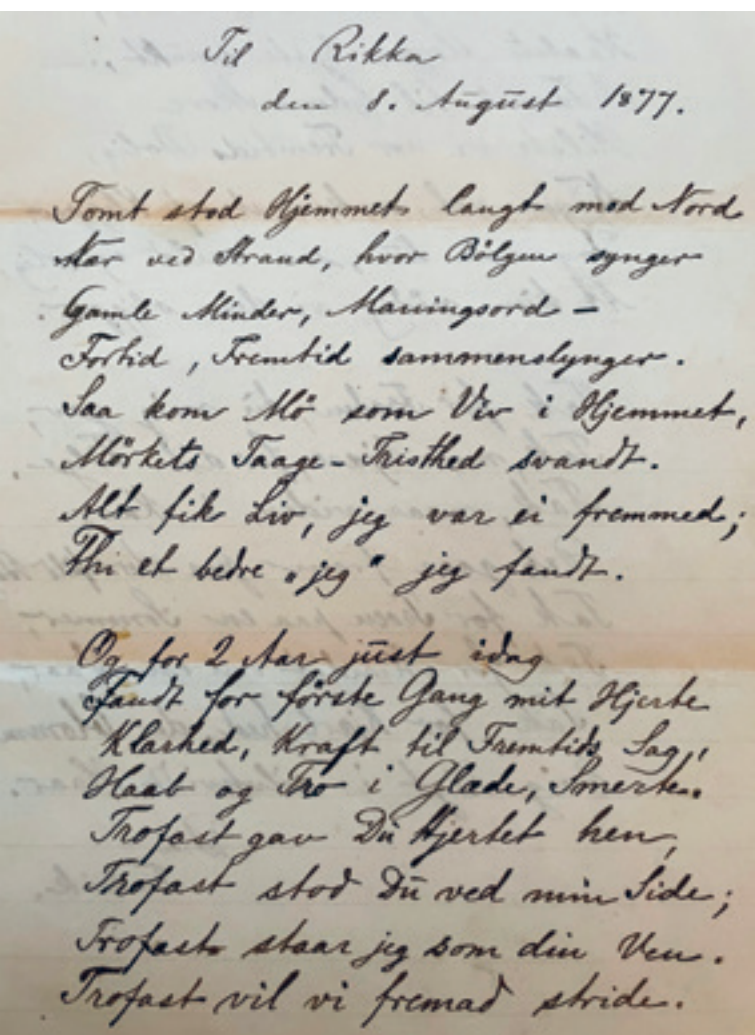 Til Rikka
den 8. August 1877.
Tomt stod Hjemmet langt mod Nord
Nær ved Strand, hvor Bølgen synger
Gamle Minder, Maningsord –
Fortid, Fremtid sammenslynger.
Saa kom Mö som Viv i Hjemmet,
Mörkets Taage-Tristhed svandt.
Alt fik Liv, jeg var ei fremmed;
Thi et bedre „jeg" jeg fandt.
Og for 2 Aar just idag
Fandt for förste Gang mit Hjerte
Klarhed, Kraft til Fremtids Sag,
Haab og Tro i Glæde, Smerte.
Trofast gav Du Hjertet hen,
Trofast stod Du ved min Side;
Trofast staar jeg som din Ven.
Trofast vil vi fremad stride.